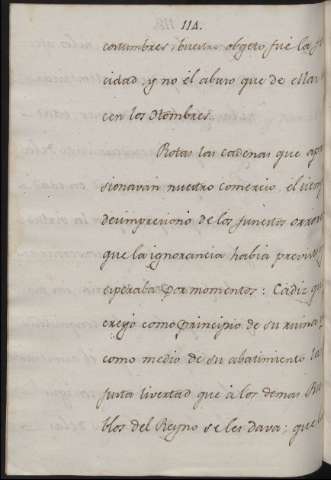 114.
costumbres; buestro objeto fue la
cidad, y no el abuso que de ellas
cen los Hombres.
Rotas las cadenas que
sionavan nuestro comercio, el
desimpresionó de los funestos
que la ignorancia habia
esperaba por momentos: Cádiz
creyó como principio de su ruina
como medio de su abatimiento la
justa livertad que á los demas
blos del Reyno se les dava; que